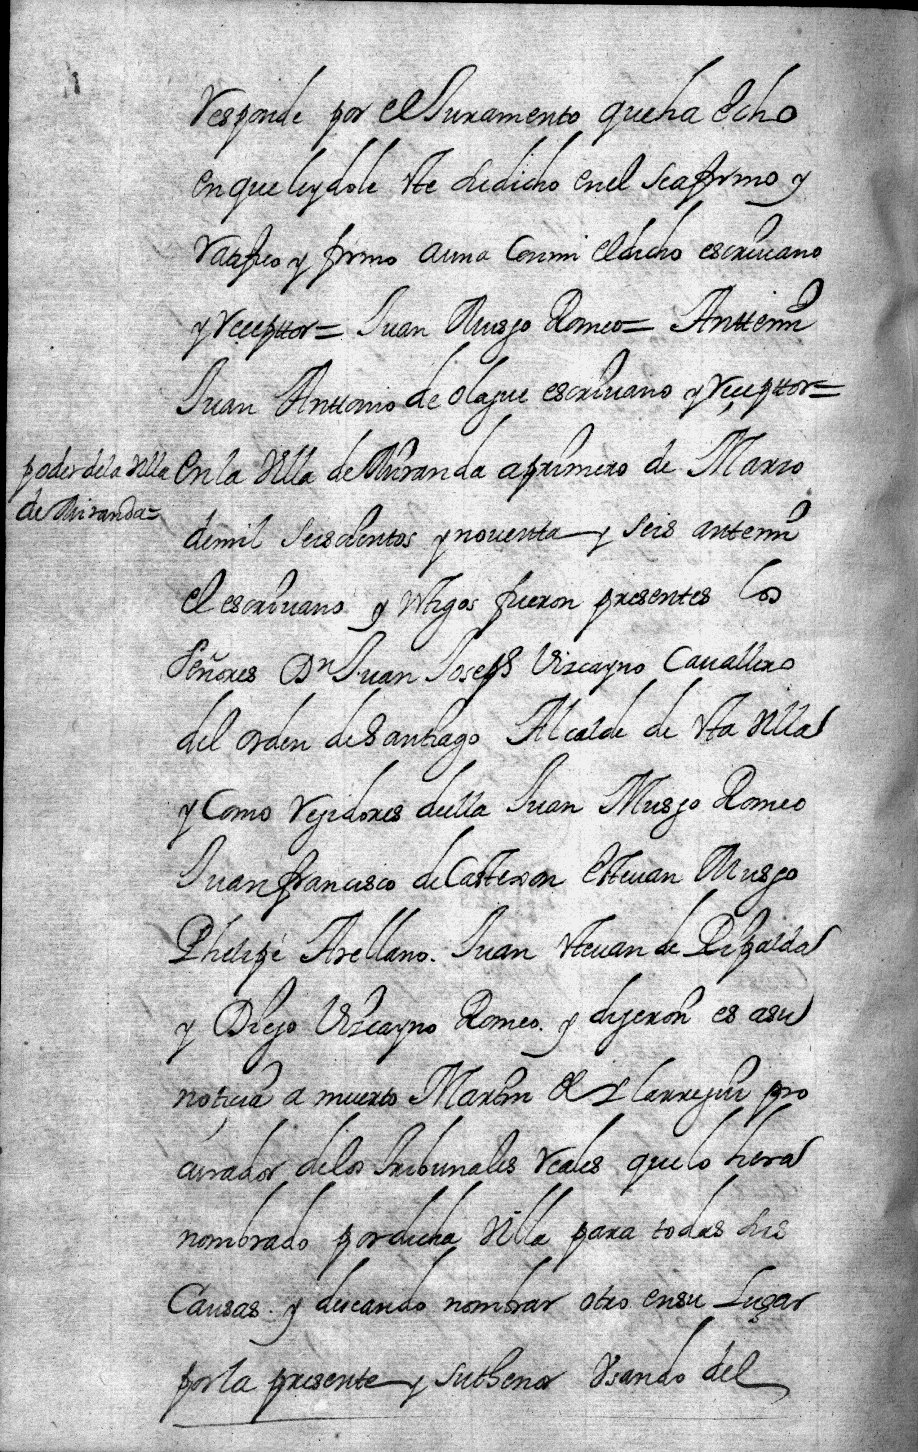 Responde por el Juramento que ha echo
en que leydole este su dicho en el se afirmo y
Ratifico y firmo a una Conmi el dicho escriuano
y Receptor = Juan Musgo Romeo = Anttemi
Juan Anttonio de olague escriuano y Receptor =
poder de la Villa
de Miranda =
En la Villa de Miranda a primero de Marzo
de mil Seiscientos y nouenta y seis antemi
el escriuano y testigos fueron presentes los
Señores Dn Juan Joseph Vizcayno Cauallero
del orden de Santiago Alcalde de esta Villa
y Como Regidores della Juan Musgo Romeo
Juan francisco de Casteron esteuan Musgo
Phelipe Arellano. Juan esteuan de Ripalda
y Diego Vizcayno Romeo. y dijeron es a su
noticia a muerto Martin de Ylarregui pro
curador de los Tribunales Reales que lo hera
nombrado por dicha Villa para todas sus
Causas. y buscando nombrar otro en su Lugar
por la presente y su thenor Vsando del